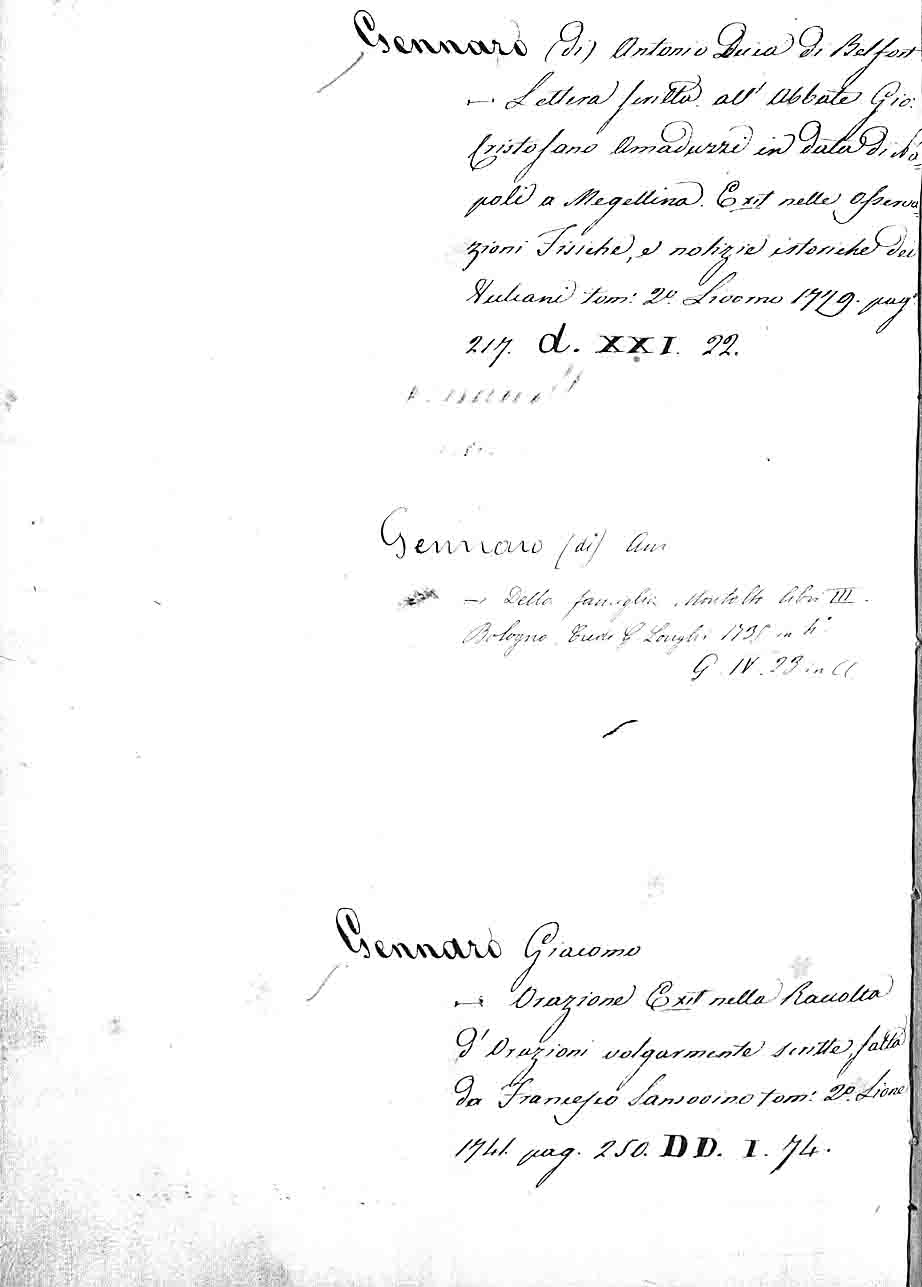 Gennaro (di) Antonio Duca di Belfort
— Lettera scritta all' Abbate Gio:
Cristofano Amaduzzi in data di Na-
poli a Megellina. Exit nelle Osserva-
zioni Fisiche, e notizie istoriche dei
Vulcani tom: 2º. Livorno 1779. pag.
217. d. XXI. 22.
Gennaro (di)
— Della famiglia Montalto libri III.
Bologna 1735 in 4º
G. IV. 23 in
Gennaro Giacomo
— Orazione Exit nella Raccolta
d'Orazioni volgarmente scritte, fatta
da Francesco Sansovino tom: 2º. Lione
1741. pag. 250. DD. I. 74.